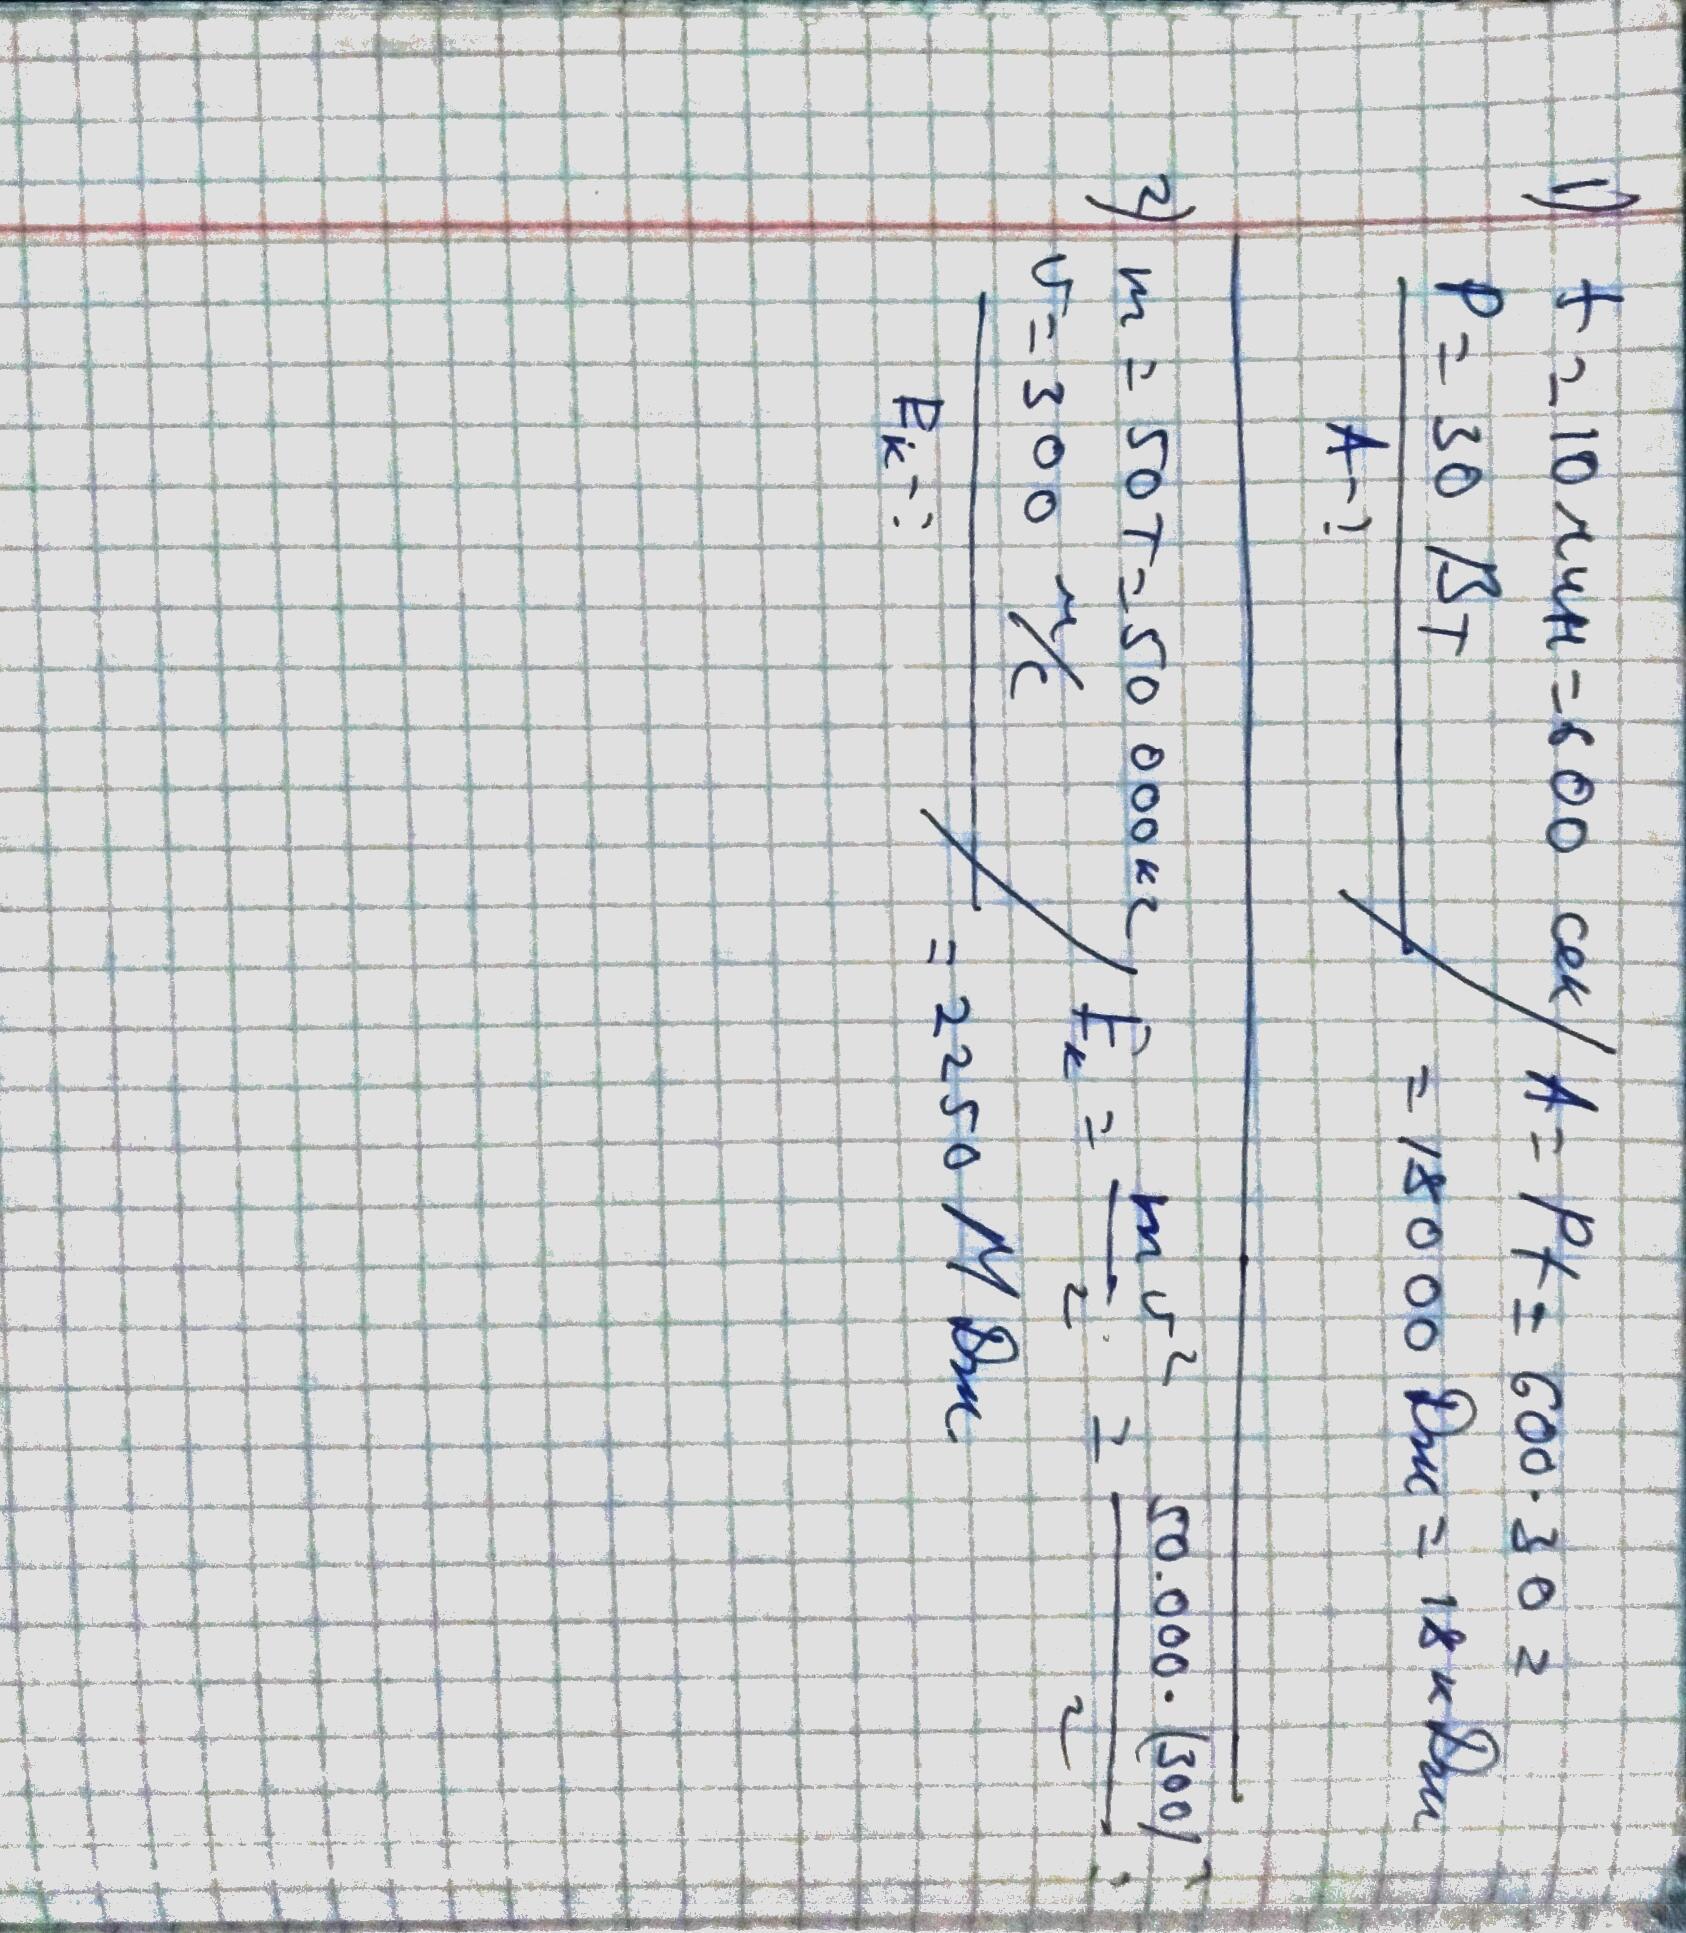 1) t = 10 мин = 600 сек
P = 30 Вт
A - ?
A = Pt = 600 · 30 =
= 18000 Дж = 18 кДж
2) m = 50т = 50 000кг
v = 300 м/с
Eк - ?
Eк = mv²/2 = 50.000 · (300)²/2 =
= 2250 МДж